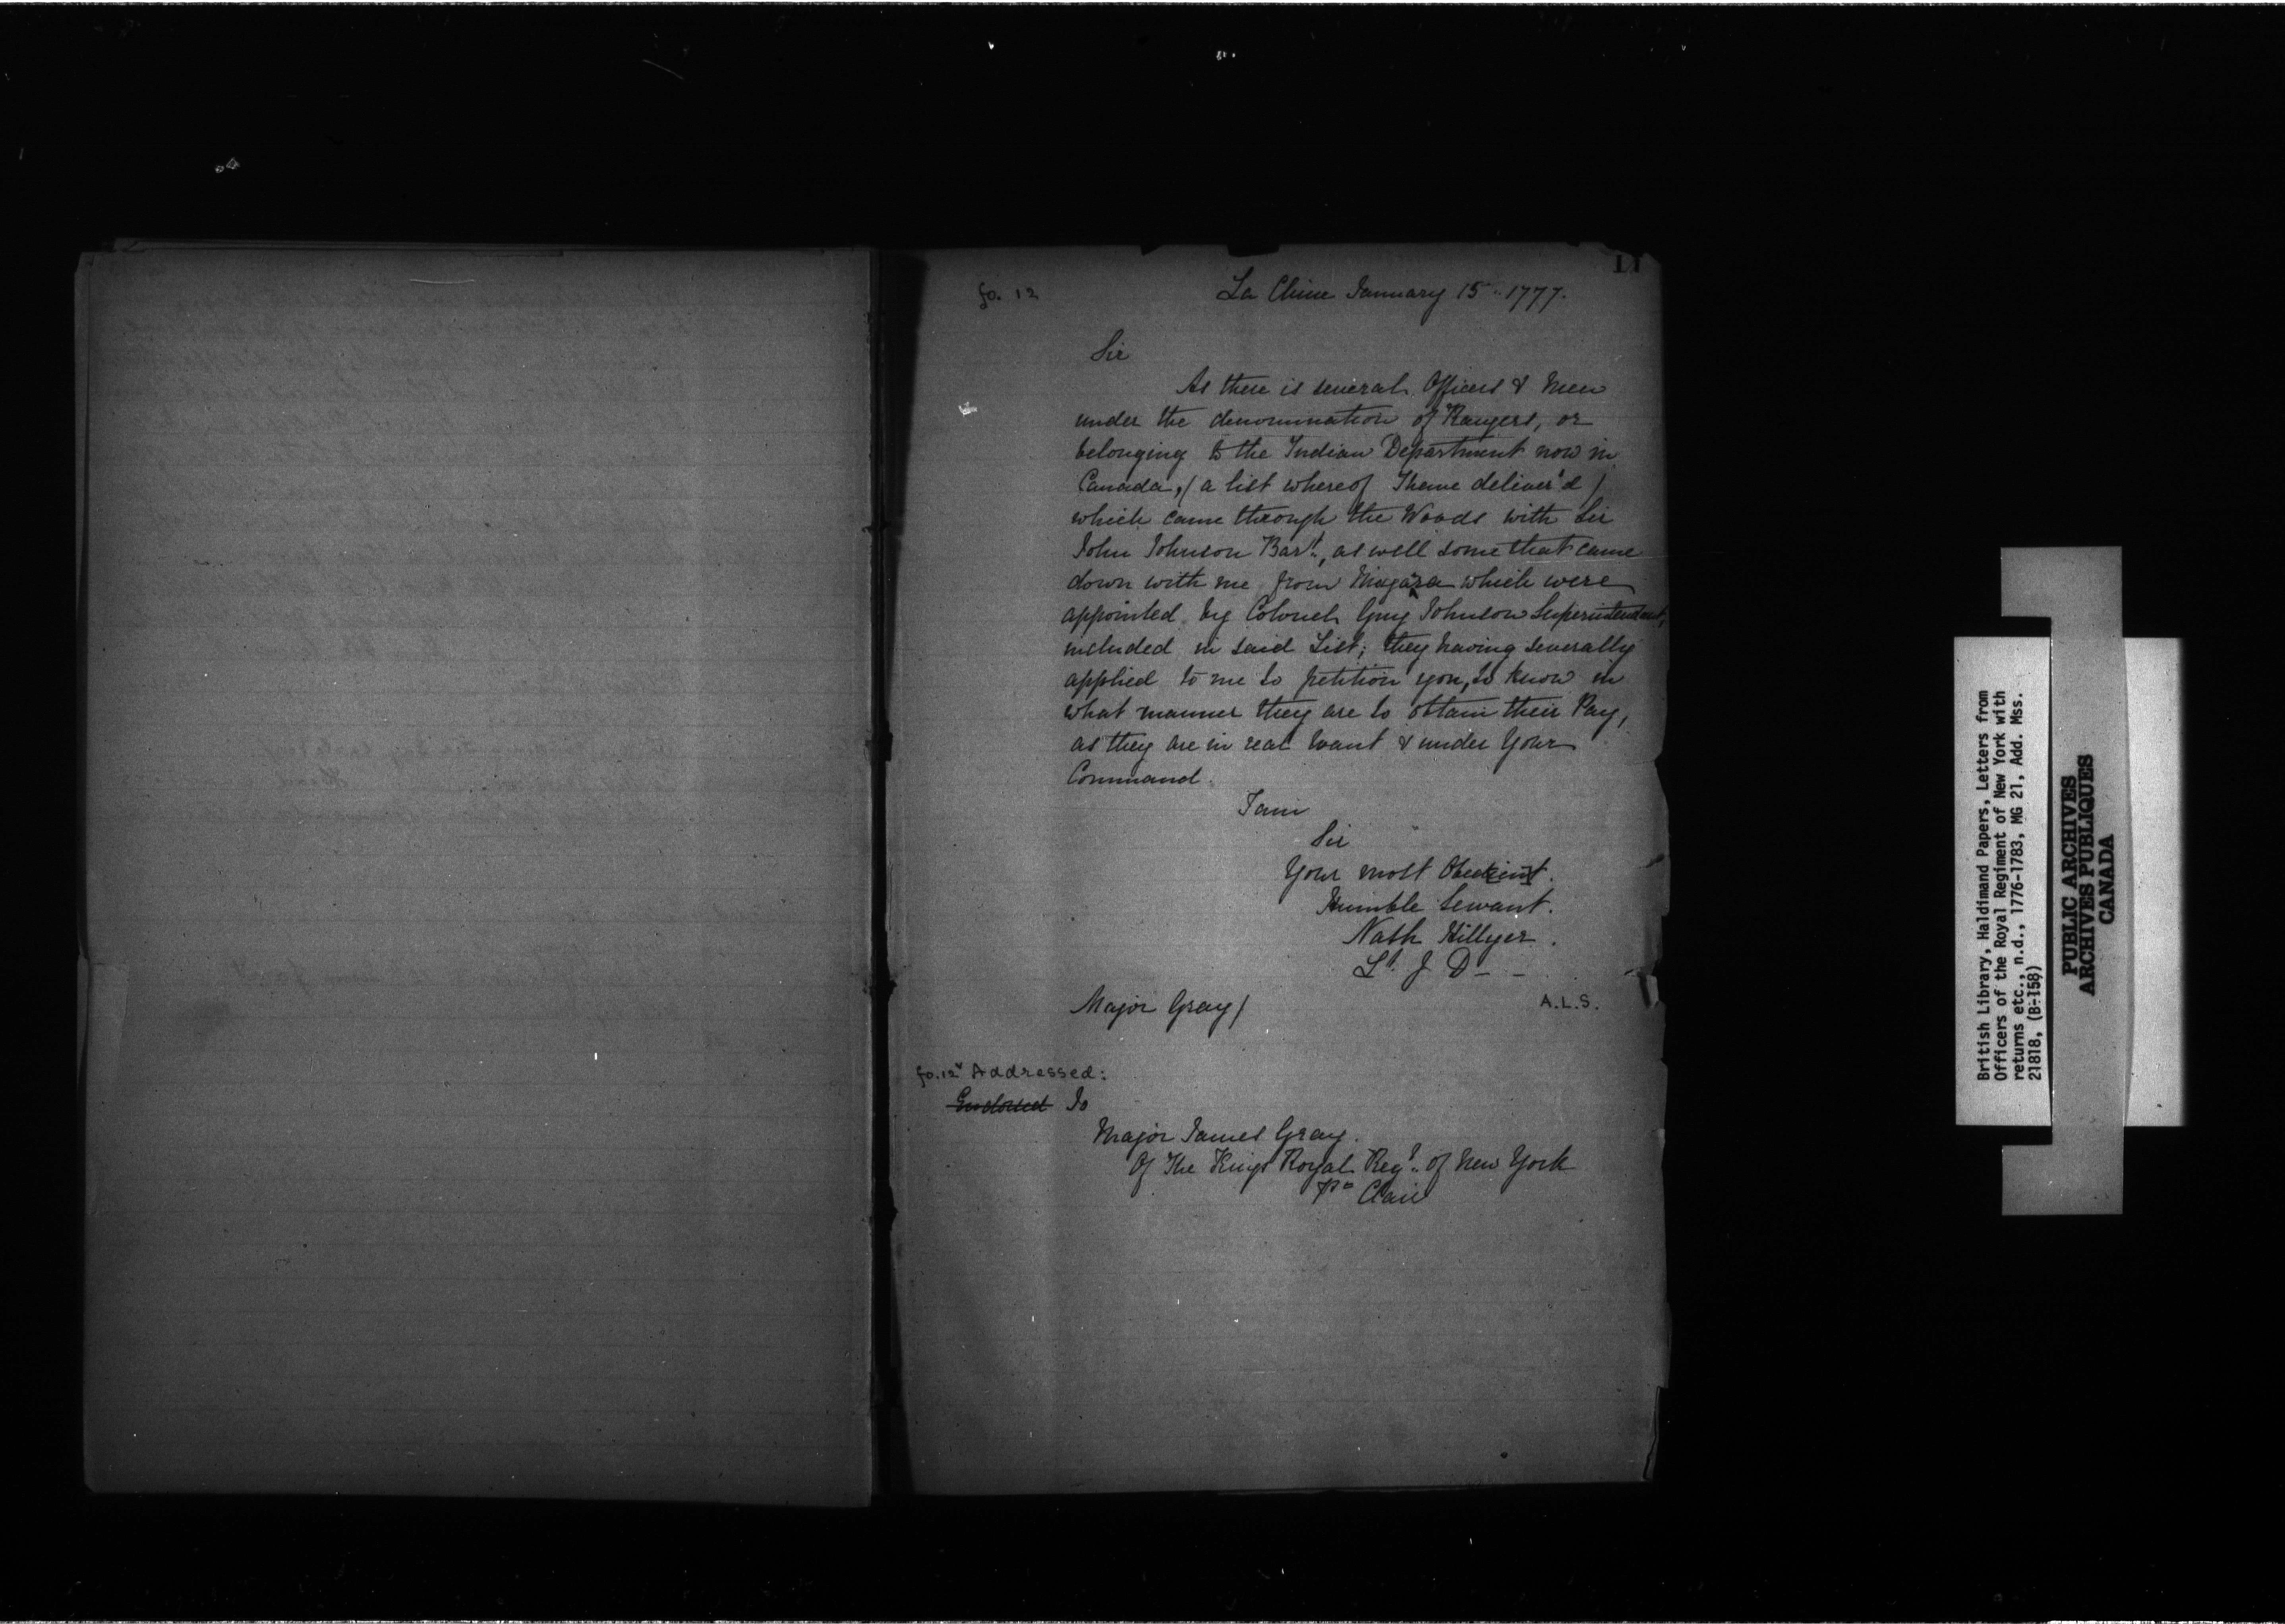 11
fo. 12
La Chine January 15th 1777.
Sir
As there is several Officers & Men
under the denomination of Rangers, or
belonging to the Indian Department now in
Canada, (a list whereof I have deliver'd)
which came through the Woods with Sir
John Johnson Bart., as well some that came
down with me from Niagara which were
appointed by Colonel Guy Johnson Superintendant,
included in said List; they having severally
applied to me to petition you, to know in
what manner they are to obtain their Pay,
as they are in real want & under Your
Command.
I am
Sir
Your most Obedient.
Humble Servant.
Nath Hillyer.
Lt. I D - -
Major Gray/
A.L.S.
fo. 12v Addressed:
Endorsed To
Major James Gray.
Of The Kings Royal Regt. of New York
Po Clair
British Library, Haldimand Papers, Letters from
Officers of the Royal Regiment of New York with
returns etc., n.d., 1776-1783, MG 21, Add. Mss.
21818, (B-158)
PUBLIC ARCHIVES
ARCHIVES PUBLIQUES
CANADA